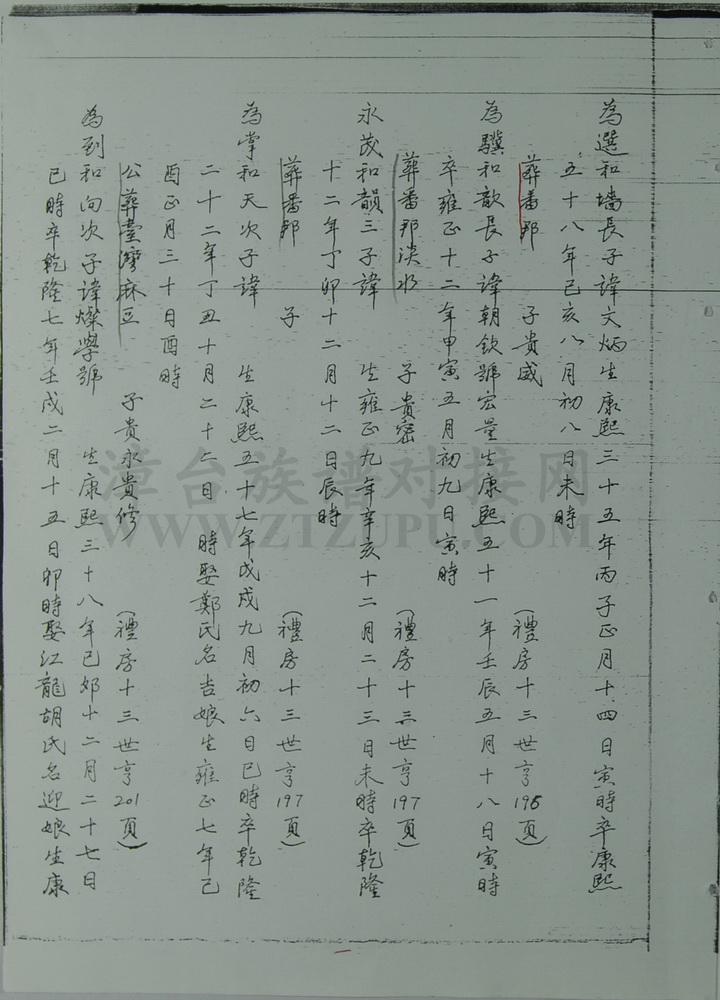 為選和墻長子諱文炳生康熙三十五年丙子正月十四日寅時卒康熙
五十八年己亥八月初八日未時
葬番邦 子貴威 (禮房十三世亨195頁)
為驥和歆長子諱朝欽號宏量生康熙五十一年壬辰五月十八日寅時
卒雍正十二年甲寅五月初九日寅時
葬番邦淡水 子貴密 (禮房十三世亨197頁)
永茂和韻三子諱 生雍正九年辛亥十二月二十三日未時卒乾隆
十二年丁卯十二月十二日辰時
葬番邦 子 (禮房十三世亨197頁)
為掌和天次子諱 生康熙五十七年戊戌九月初六日巳時卒乾隆
二十二年丁丑十月二十二日 時娶鄭氏名吉娘生雍正七年己
酉正月三十日酉時
公葬臺灣麻豆 子貴永貴修 (禮房十三世亨201頁)
為到和向次子諱燦學號 生康熙三十八年己卯十二月二十七日
巳時卒乾隆七年壬戌二月十五日卯時娶江龍胡氏名迎娘生康
漳台族谱对接网
WWW.ZTZUPU.COM